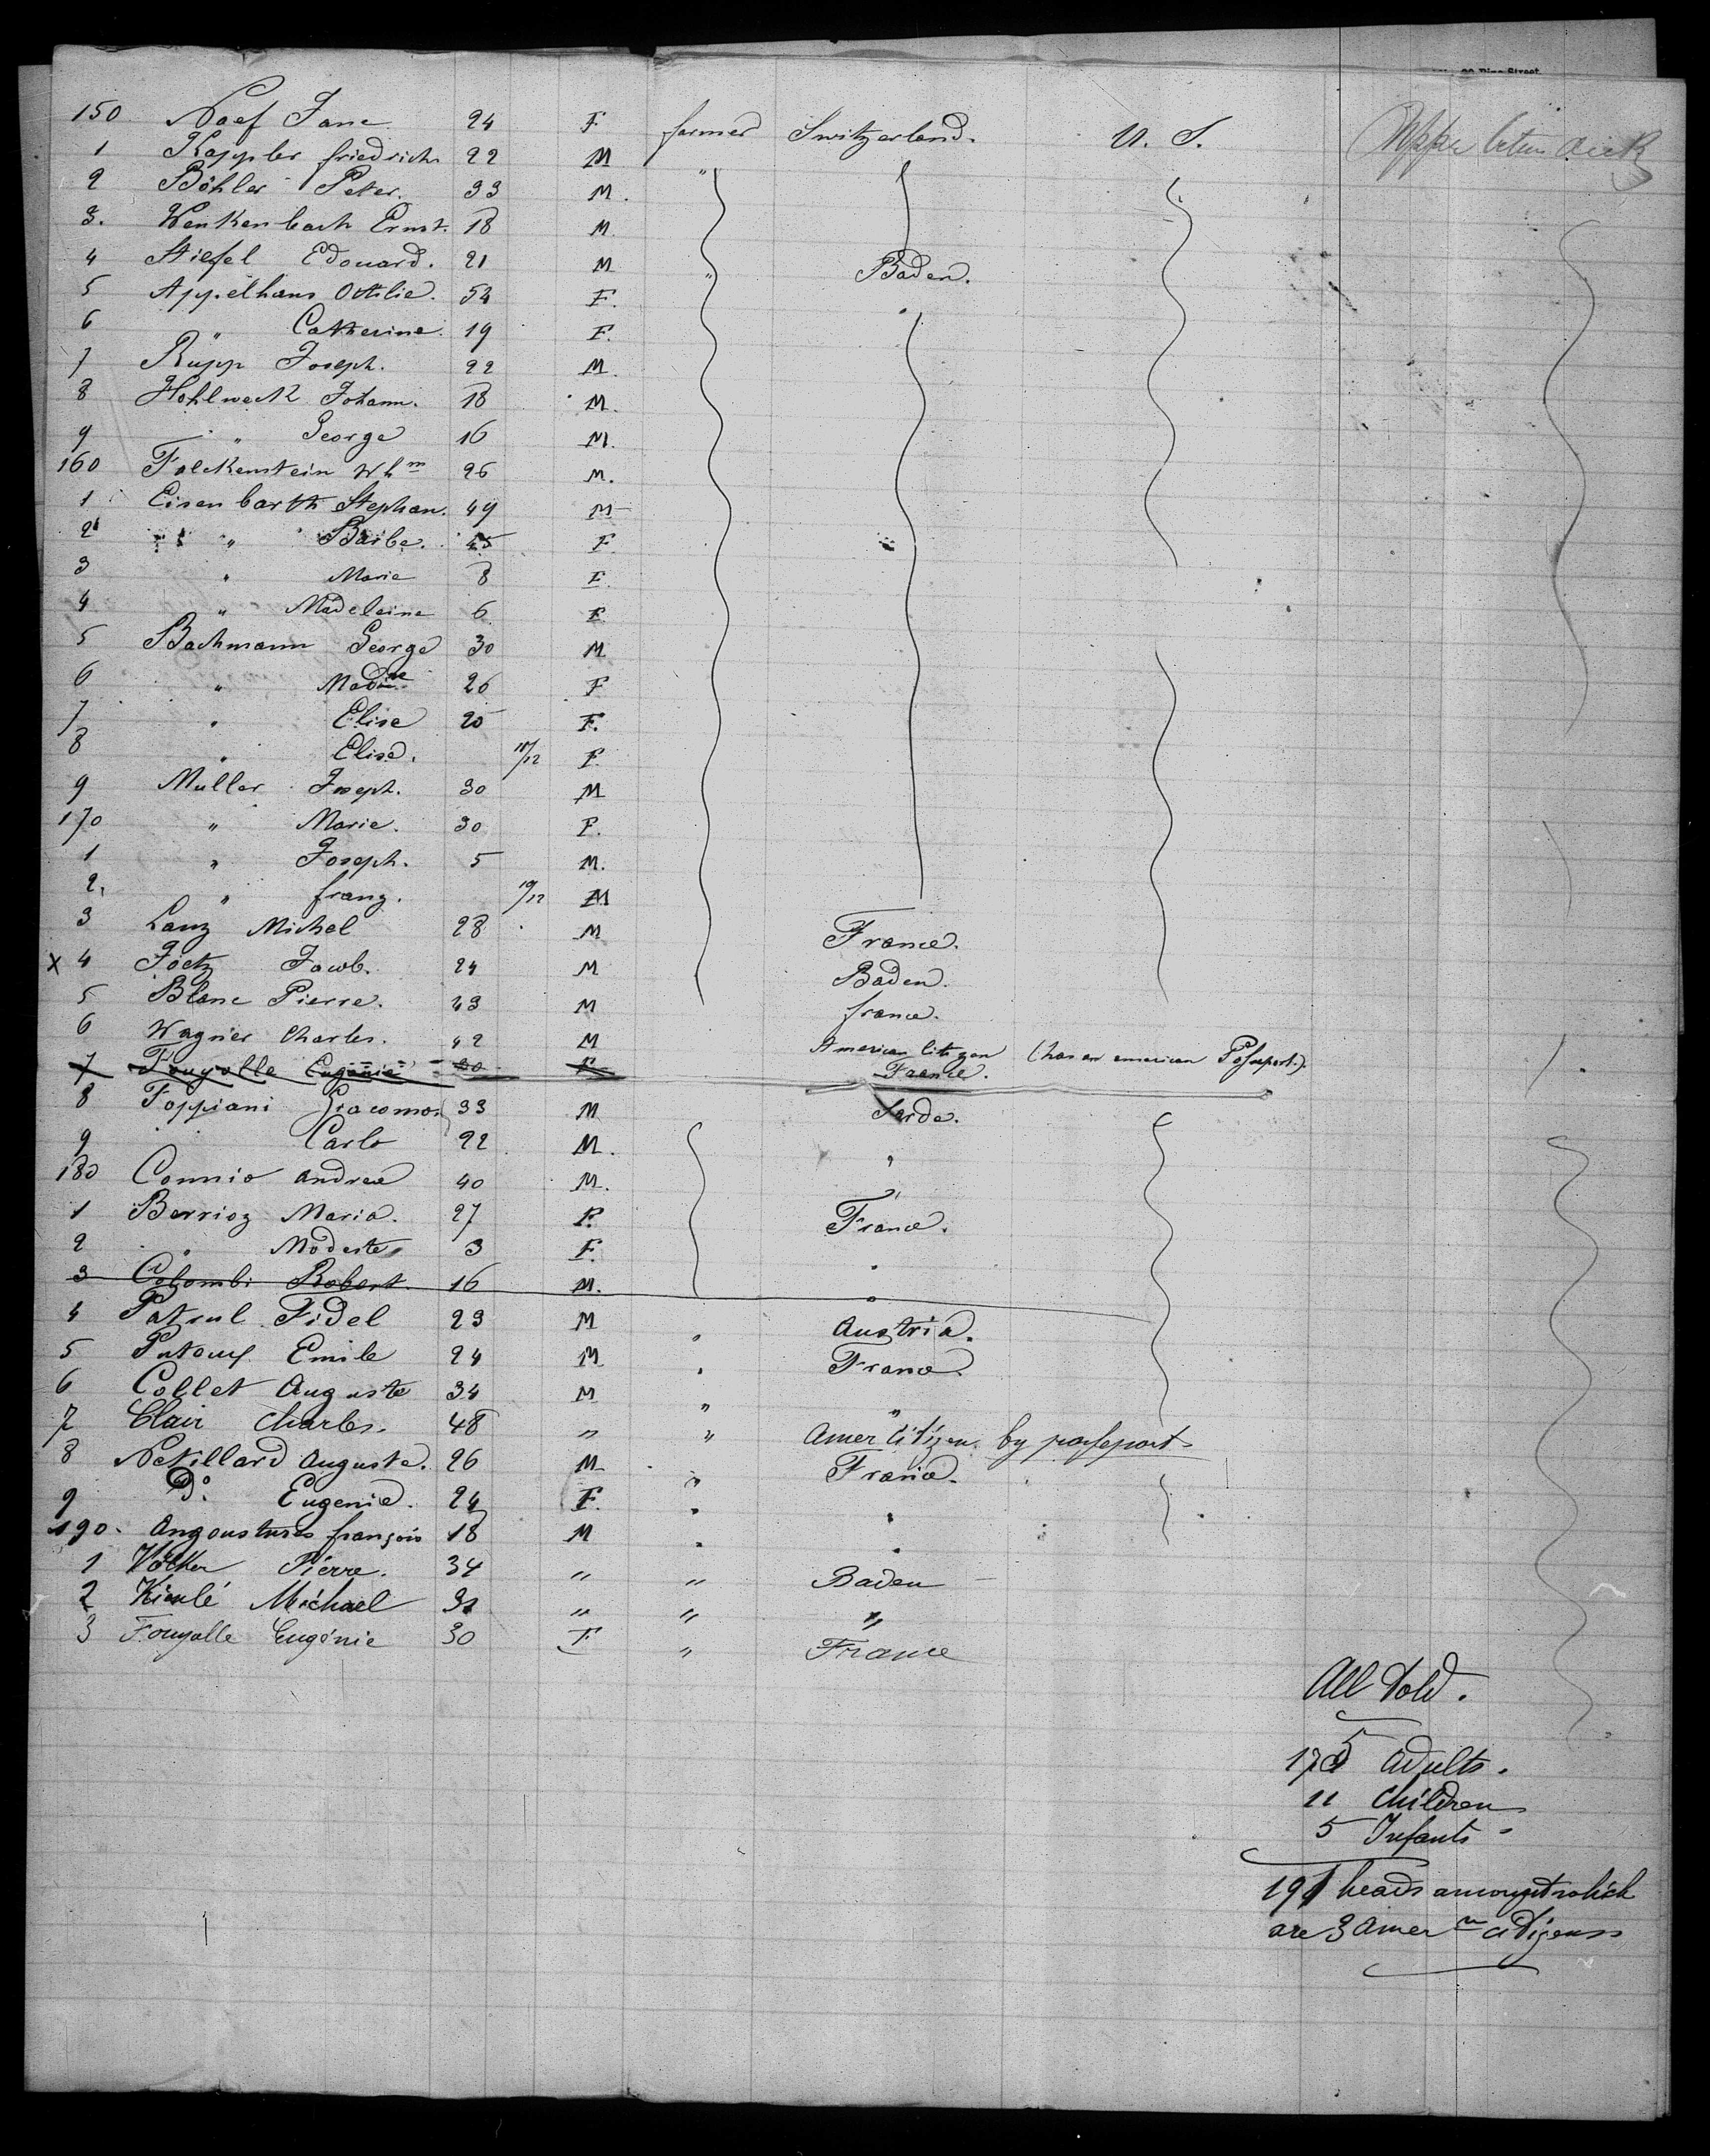 150 Naef Jane 24 F farmer Switzerland. U. S. Upper between deck
1 Kappler friedrich 22 M "
2 Böhler Peter. 33 M.
3. Wenkenbach Ernst. 18 M
4 Stiefel Edouard. 21 M " Baden.
5 Appelhans Ottilie. 54 F. "
6 " Catherine. 19 F.
7 Rupp Joseph. 22 M.
8 Hohlweck Johann. 18 M.
9 " George 16 M.
160 Falckenstein Whm 26 M.
1 Eisenbarth Stephan. 49 M
2 " Barbe. 45 F
3 " Marie 8 F.
4 " Madeleine 6 F
5 Bachmann George 30 M
6 " 26 F
7 " Elise 20 F.
8 " Elise. /12 F.
9 Muller Joseph. 30 M
170 " Marie. 30 F.
1 " Joseph. 5 M.
2. " franz. 10/12 M
3 Lanz Michel 28 M France.
x 4 Jacob. 24 M Baden.
5 Blanc Pierre. 43 M france.
6 Wagner Charles. 42 M American Citizen (has an american Passeport.)
7 Fouyolle Eugénie 30 F France.
8 Foppiani Giacomo. 33 M Sarde.
9 Carlo 22 M. "
180 Connio Andrea 40 M. "
1 Berrioz Maria. 27 F. France.
2 " Modeste 3 F. "
3 Colombi Robert 16 M. "
4 Fidel 23 M " Austria.
5 Emile 24 M " France.
6 Collet Auguste 34 M " "
7 Clair Charles. 48 " " Amer Citizen. by passeport
8 Auguste. 26 M " France.
9 Do. Eugenie. 24 F. " "
190. Angoustures françois 18 M " "
1 Pierre. 34 " " Baden
2 Kienlé Michael " " "
3 Fouyolle Eugénie 30 F " France
All told.
175 Adults.
11 Children
5 Infants
191 heads amongst which
are 3 Amern citizens